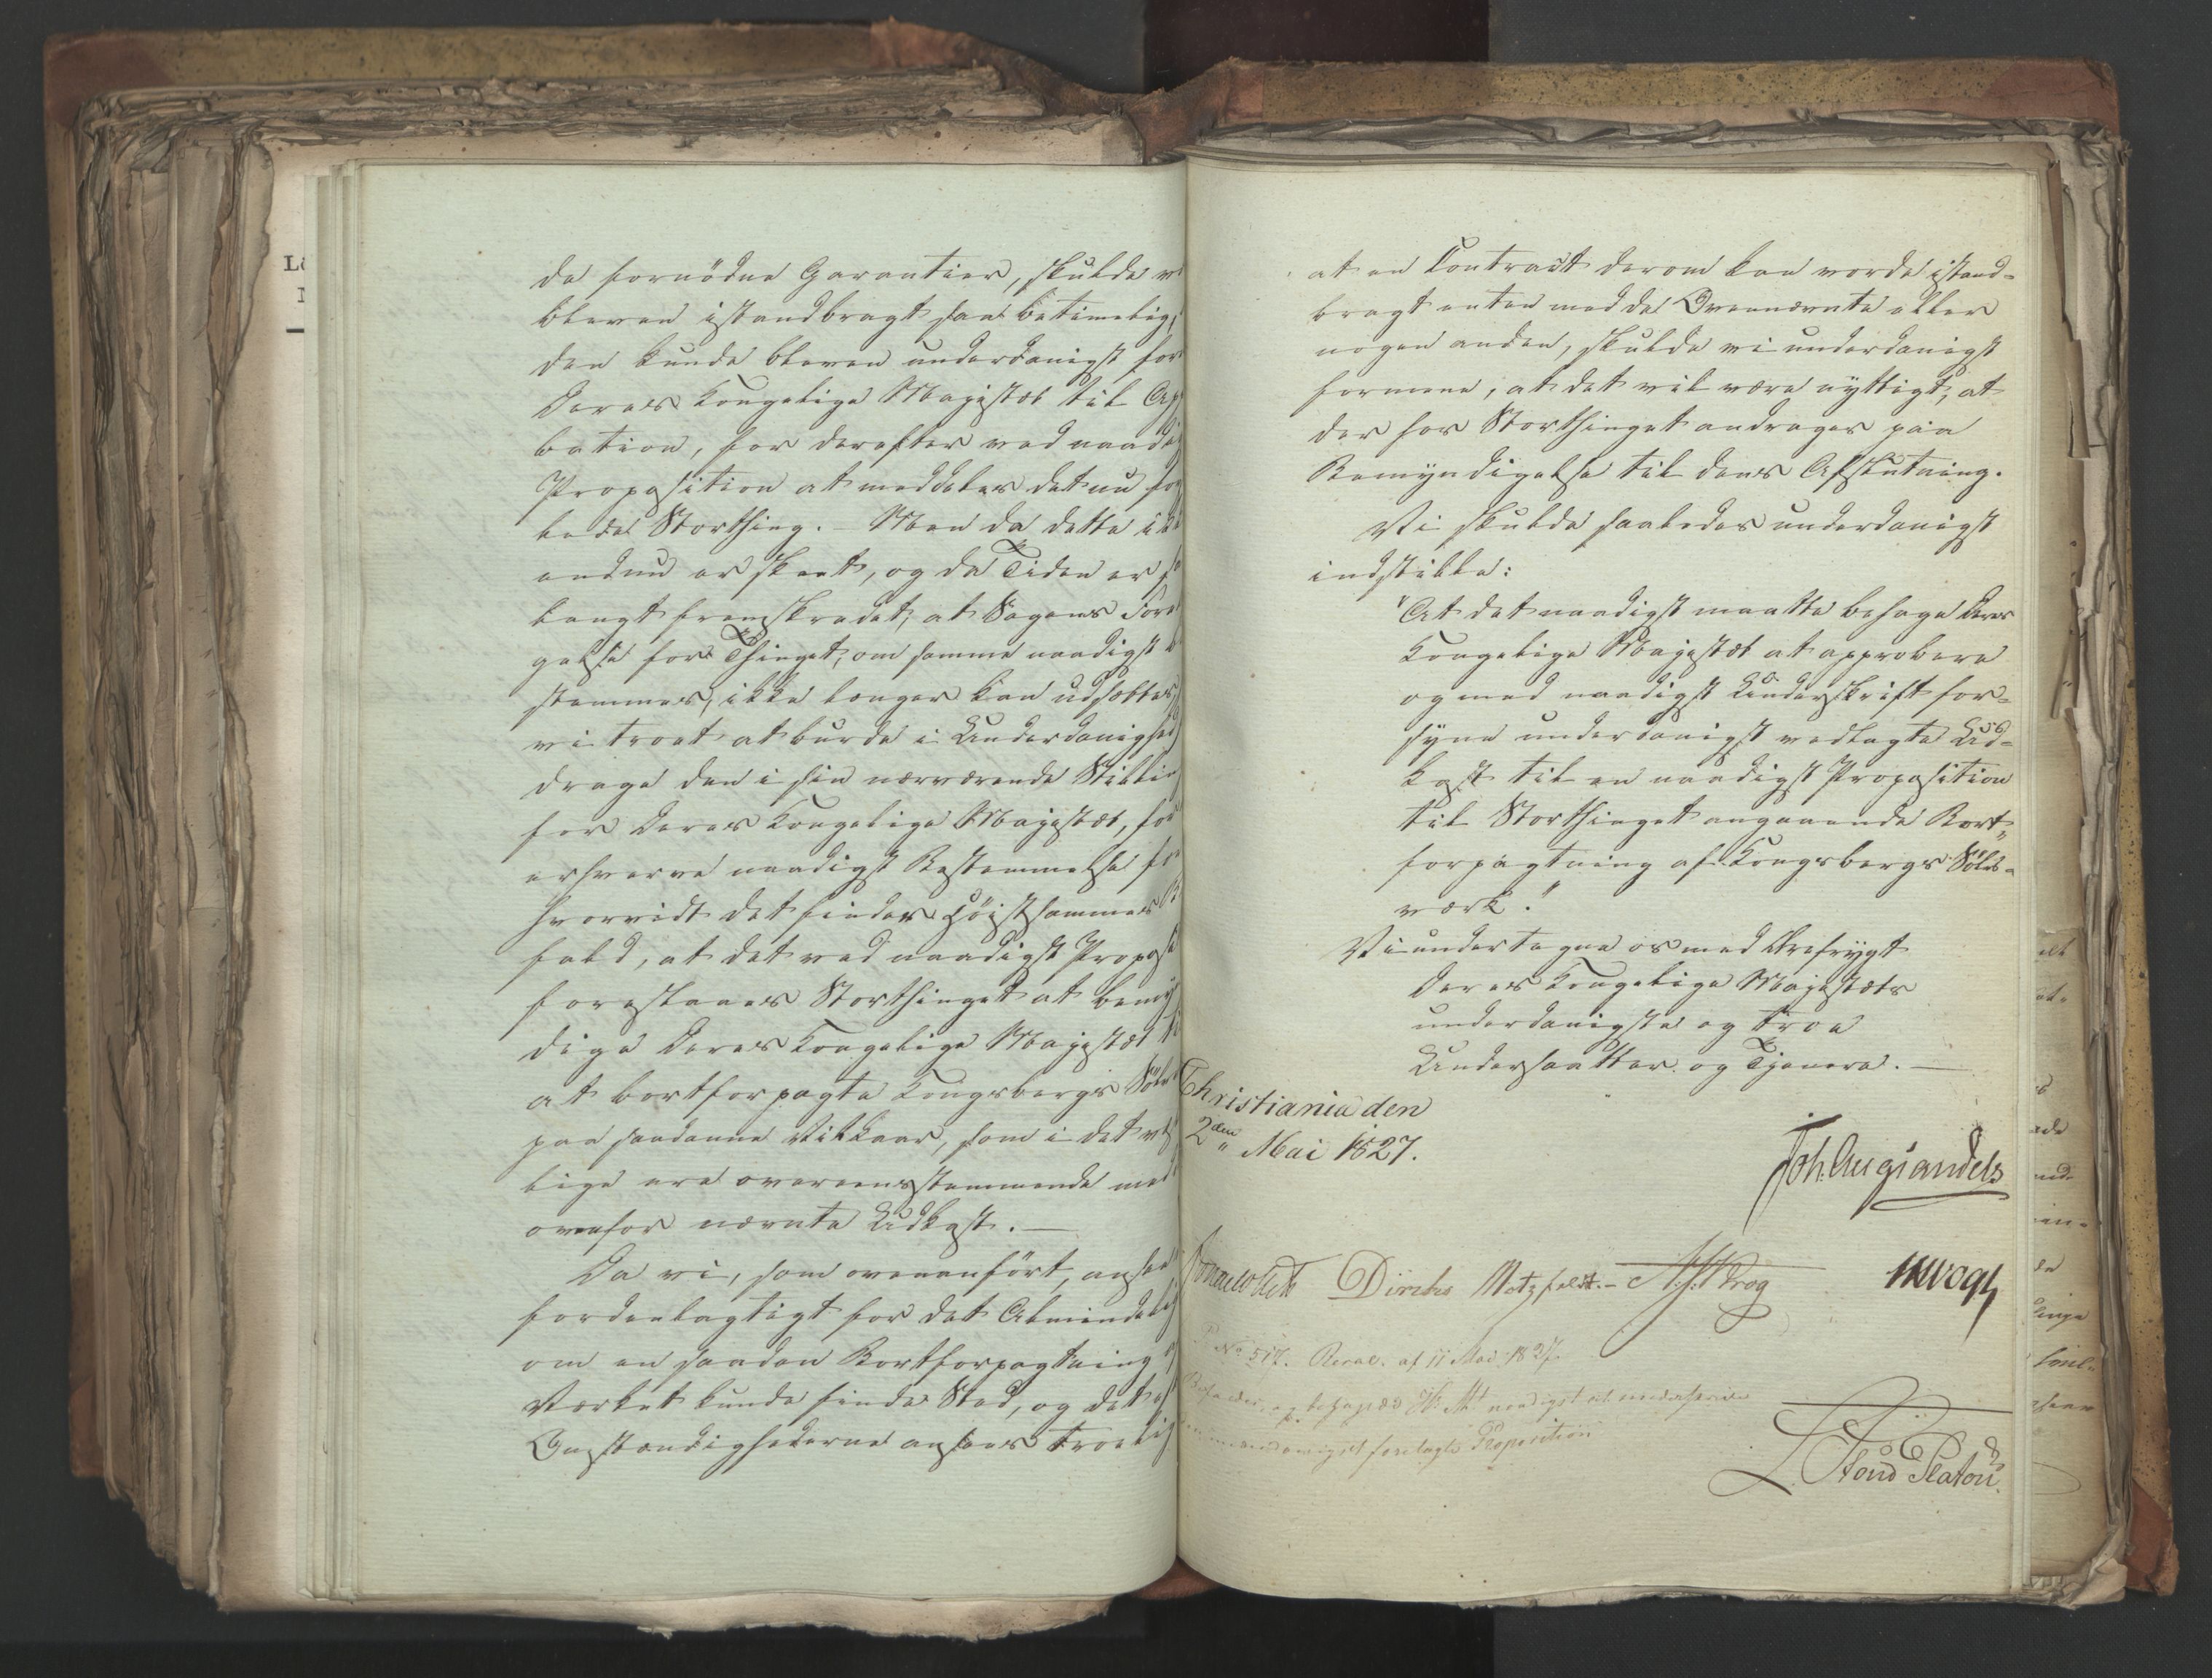 de fornödne Garantier, skulde v
bleven istandbragt saa betimelig,
den kunde bleven underdanigst fore
Deres Kongelige Majestæt til App
bation, for derefter ved naadig
Proposition at meddeles det nu for
lede Storthing. – Men da dette ikke
endnu er skeet, og da Tiden er saa
langt fremskredet, at Sagens Fore
gelse for Thinget, om samme naadigst be
stemmes, ikke længer kan udsættes,
vi troet at burde i Underdanighed
drage den i sin nærværende Stilling
for Deres Kongelige Majestæt, for
erhverve naadigst Bestemmelse for
hvorvidt det finder Höistsammes Bi
fald, at det ved naadigst Proposi
foreslaaes Storthinget at bemyn
dige Deres Kongelige Majestæt til
at bortforpagte Kongsbergs Sölv
paa saadanne Vilkaar, som i det væsent
lige ere overeensstemmende med
ovenfor nævnte Udkast. —
Da vi, som ovenanfört, ansee
fordeelagtigt for det Almindelig
om en saadan Bortforpagtning af
Værket kunde finde Sted, og det af
Omstændighederne ansees troelig
at en Contract derom kan vorde istand-
bragt enten med de Ovennævnte eller
nogen anden, skulde vi underdanigst
formene, at det vil være nyttigt, at
der hos Storthinget andrages paa
Bemyndigelse til dens Afslutning.
Vi skulde saaledes underdanigst
indstille:
"At det naadigst maatte behage Deres
Kongelige Majestæt at approbere
og med naadigst Underskrift for-
syne underdanigst vedlagte Ud-
kast til en naadigst Proposition
til Storthinget angaaende Bort-
forpagtning af Kongsbergs Sölv-
værk."
Vi undertegne os med Ærefrygt
Deres Kongelige Majestæts
underdanigste og troe
Undersaatter og Tjenere. —
Christiania den
2den Mai 1827.
Joh. Aug Sandels
Jonas Collett Diriks Motzfeldt. – A. J. Krog JHVogt
No 517. Resol. af 11 Mai 1827.
behages Hs. Mt. naadigst at underskrive
underdanigst forelagte Proposition
L. Stoud Platou